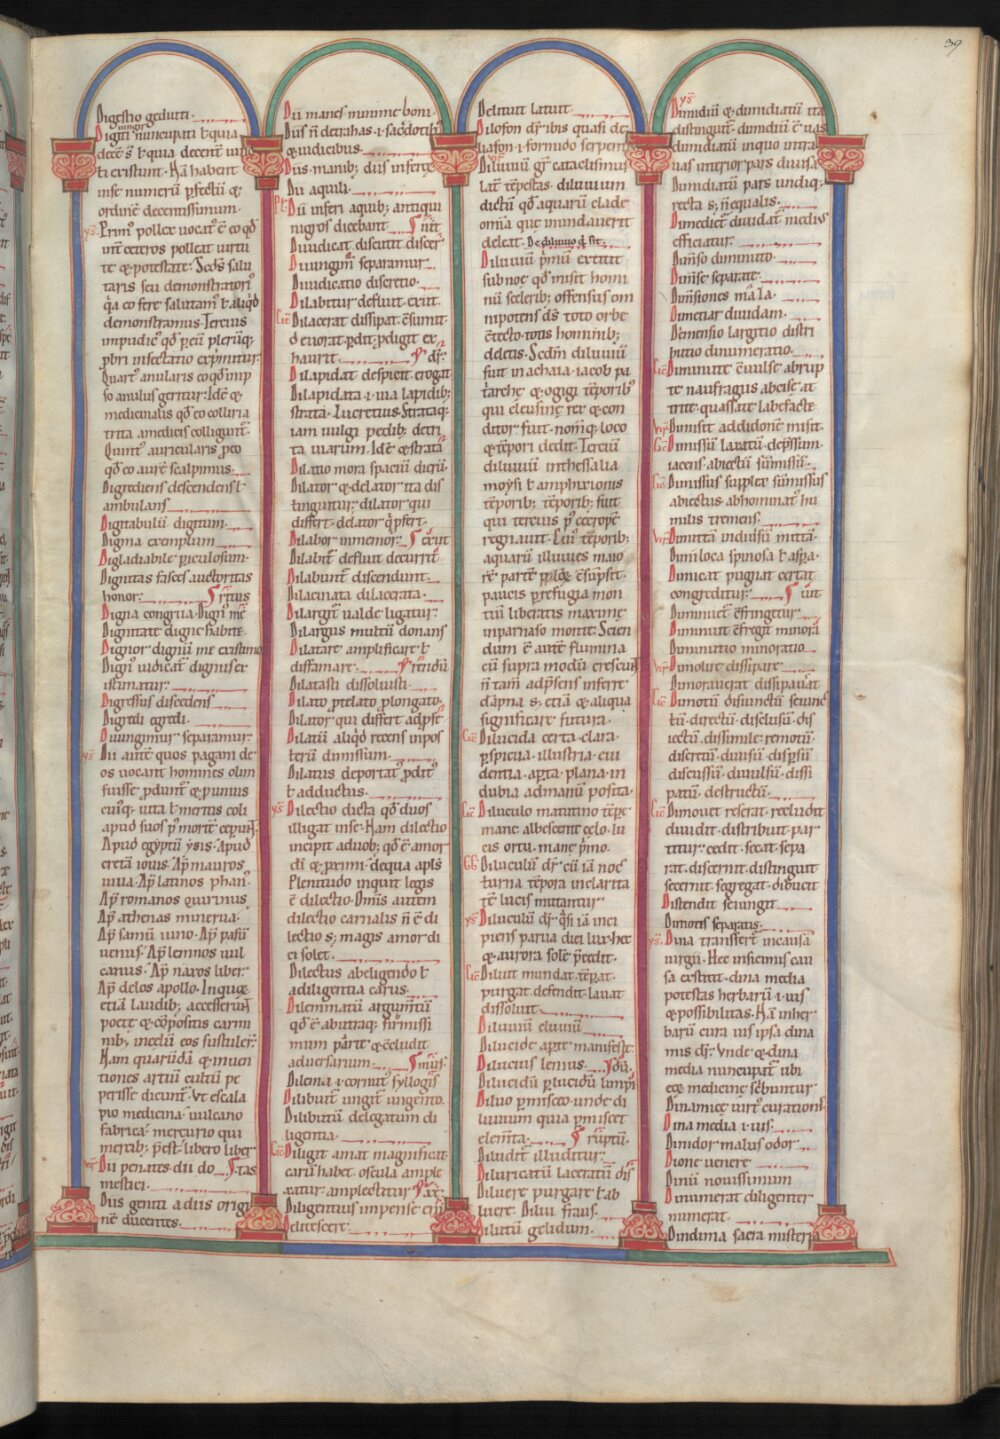 39
Digestio gedurti.
Digiti nuncupati t quia
decē s̄ t quia decent iunc
ti existunt. Nā habent
inse numerū p̄fectū &
ordinē decentissimum.
ys̄ Primꝰ pollex uocatꝰ ē eo qđ
int̄ ceteros polleat uirtu
te & potestate. Scđs salu
taris seu demonstratorꝰ
q̄a eo fere salutamꝰ t aliqđ
demonstramus. Tercius
impudicꝰ qđ p eū pleruq;
pbri insectatio exp̄mitur.
Quartꝰ anularis eo qđ in ip
so anulus geritur. Idē &
medicinalis qđ eo colliria
trita amedicis colligunt̄.
Quintꝰ auricularis p eo
qđ eo aurē scalpimus.
Digrediens descendens t
ambulans
Digitabulū digitum
Digma exemplum
Digladiabile p̄iculosum.
Dignitas fasces auctoritas
honor.
Digna congrua. Dignꝰ mē
Dignitate digne habite
Dignior dignū me existimo
Dignꝰ iudicat̄ dignus ex
istimatur.
Digressus discedens
Digredi egredi.
Diiungimur separamur.
ys̄ Dii aut̄ quos pagani de
os uocant homines olim
fuisse p̄dunt̄ & p unius
cuiꝰq; uita t meritis coli
apud suos pꝰ mortē ceper̄
Apud egyptū ysis. Apud
cretā iouis. Ap̄ mauros
iuua. Ap̄ latinos phanꝰ
Ap̄ romanos quirinus
Ap̄ athenas minerua.
Ap̄ samū iuno. Ap̄ pafū
uenus. Ap̄ lemnos uul
canus. Ap̄ naxos liber.
Ap̄ delos apollo. Inquę
etiā laudib; accesserūt
poetę & cōpositis carmi
nib; incelū eos sustuler̄.
Nam quarūdā & inuen
tiones artiū cultū pe
perisse dicunt̄. Vt escula
pio medicina. uulcano
fabrica. mercurio qui
mercib; p̄est. libero liber
Dii penates dii do
mestici.
Diis geniti adiis origi
nē ducentes.
Dii manes minime boni
Diis n̄ detrahas .i. sacdotib;
& iudicibus.
Diis manib; diis inferis
Dii aquili
Dii inferi aquib; antiqui
nigros dicebant
Diiudicat discutit discer
Diiungimꝰ separamur.
Diiudicatio discretio.
Dilabitur defluit exiit.
Cic̄ Dilacerat dissipat. c̄sumit.
deuorat. p̄dit. p̄digit ex
haurit.
Dilapidat despicit. erogat
Dilapidata .i. uia lapidib;
strata. Lucretius. Strataq;
iam uulgi pedib; detri
ta uiarum. Idē & strata
Dilatio mora spaciū dierū.
Dilator & delator ita dis
tinguitur. dilator qui
differt. delator q̄ p̄fert.
Dilabor inmemor.
Dilabit̄ defluit decurrit̄
Dilabunt̄ discendunt.
Dilacinata dilacerata.
Dilargit̄ ualde ligatur.
Dilargus multū donans
Dilatare amplificare t
diffamare.
Dilatasti dissoluisti.
Dilato p̄telato plongato.
Dilator qui differt adp̄ste
Dilatū aliqđ recens inpos
terū dimissum.
Dilatus deportatꝰ p̄ditꝰ
t adductus.
ys̄ Dilectio dicta qđ duos
illigat inse. Nam dilectio
incipit aduob; qđ ē amor
dī & p̄ximi. dequa apl̄s
Plenitudo inquit legis
ē dilectio. Om̄is autem
dilectio carnalis n̄ ē di
lectio s; magis amor di
ci solet.
Dilectus abeligendo t
adiligentia carus.
Dilemmatū argum̄tū
qđ ē abutraq; firmissi
mum parte & c̄cludit
aduersarium.
Dilema .i. cornutꝰ syllogis
Dilibunt̄ ungit̄ ungento.
Dilibutū delegatum di
ligentia.
Cic̄ Diligit amat magnificat
carū habet. oscula ample
xatur. amplectitur
Diligentius impense eni
Delitescere.
Delituit latuit.
Dilofon dr̄ ibis quasi de
liafon .i. formido serpent
ys̄ Diluuiū gr̄ cataclismus
lat̄ tēpestas. diluuium
dictū qđ aquarū clade
om̄ia quę inundauerit
deleat. De diluuio q̄ sit.
Diluuiū p̄mū extitit
sub noe qđ misit homi
nū sceleriḃ; offensus om
nipotens dꝰs toto orbe
c̄tecto. totis hominib;
deletis. Scđm diluuiū
fuit inachaia. iacob pa
t̄archę & ogigi tēporib
qui eleusinę rex & con
ditor fuit. nom̄q; loco
& tēpori dedit. Terciū
diluuiū inthessalia
moysi t amphixionis
tēporib; tēporib; fuit
qui tercius pꝰ cecropē
regnauit. Cuiꝰ tēporib;
aquarū illuuies maio
rē partē pplōȝ c̄sūpsit.
paucis p̄ refugia mon
tiū liberatis maximę
inparnaso monte. Scien
dum ē autē flumina
cū supra modū crescūt
n̄ tam̄ adp̄sens inferre
dāpna s; etiā & aliqua
significare futura.
Cic̄ Dilucida certa. clara.
p̄spicua. illustria. eui
dentia. apta. plana. in
dubia admanū posita.
Cic̄ Diluculo matutino tēpe
mane albescente cęlo. lu
cis ortu. mane p̄mo.
Diluculū dr̄ cū iā noc
turna tēpora inclarita
te lucis mutantur
ys̄ Diluculū dr̄ q̄si iā inci
piens parua diei lux. hęc
& aurora solē p̄cedit.
Cic̄ Diluit mundat tēperat.
purgat defendit. lauat
dissoluit
Diluuiū eluuiū
Dilucide apte manifeste.
Dilucius lenius.
Dilucidū p̄lucidū limpi
Diluo p̄misceo. unde di
luuium quia p̄miscet
elem̄ta.
Diludit̄ illuditur.
Diluricatū laceratū diſ
Diluere purgare t ab
luere. Dilui fraus.
Dilutū gelidum.
ys̄ Dimidiū & dimidiatū ita
distinguit̄. dimidiū ē uas
dimidiatū inquo intra
uas interior pars diuisa
Dimidiatū pars undiq;
recta s; n̄ equalis.
Dimedicet̄ diuidat̄ medius
efficiatur.
Dimiso diminutio.
Dimise separate.
Dimſiones mala.
Dimetiar diuidam.
Dimensio largitio distri
butio dinumeratio.
Cic̄ Diminute c̄uulse abrup
te naufragus abcise at
trite. quassate labefacte
Dimisit addidonē misit.
Cic̄ Dimissū laxatū. dep̄ssum.
iacens. abiectū sūmissū.
Cic̄ Dimissus supplex sūmissus
abiectus. abhominatꝰ hu
milis tremens.
Dimittā indulsū mittā.
Dim̄i loca spinosa t asp̄a.
Dimicat pugnat certat
congreditur.
Diminuet c̄fringetur.
Diminuit c̄fregit minora
Diminutio minoratio
Dimolire dissipare
Dimorauerat dissipauat
Cic̄ Dimotū disiunctū seiunc
tū. directū. disclusū. dis
iectū. dissimile. remotū.
disertū. diuisū. disp̄sū
discussū. diuulsū. dissi
patū. destructū.
Cic̄ Dimouet reserat. recludit
diuidit. distribuit par
titur. cedit. secat. sepa
rat. discernit. distinguit
secernit. segregat. diducit
Distendit seiungit
Dimotis separatus.
ys̄ Dina transfert̄ incausā
uirgu. Hec infirmis cau
sa extitit. dina media
potestas herbarū .i. uis
& possibilitas. Nā inher
barū cura uis ipsa dina
mis dr̄. Vnde & dina
media nuncupat̄ ubi
eęȝ medicinę scribuntur
Dinamice uirtꝰ curationis
Dina media .i. uis.
Dinidor malus odor
Dione uenere
Dinū nouissimum
Dinumerat diligenter
numerat.
Dindima sacra misteri